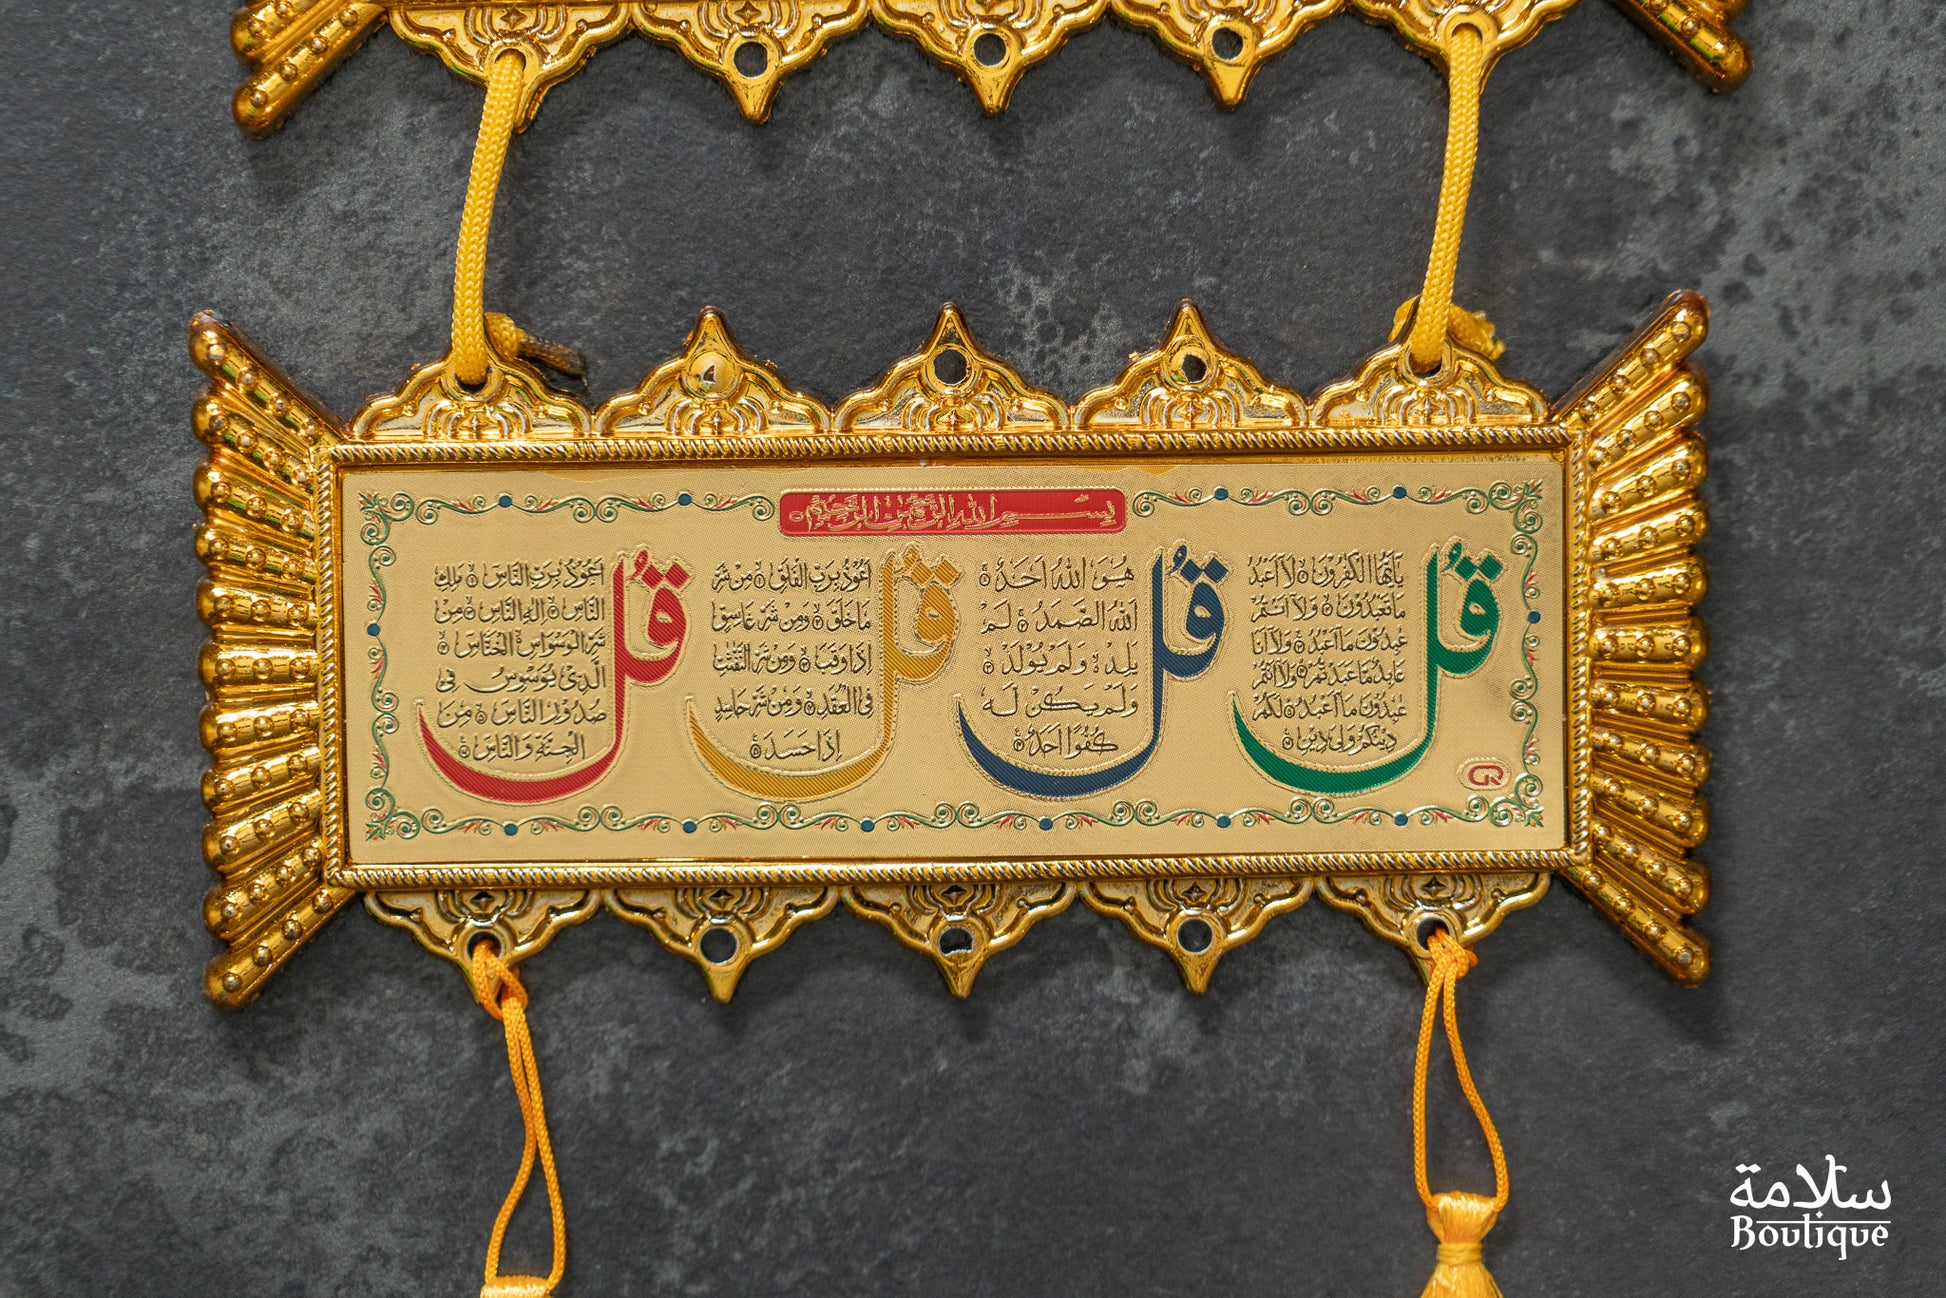 بِسْمِ اللهِ الرَّحْمٰنِ الرَّحِيْمِ
قُلْ
يٰٓاَيُّهَا الْكٰفِرُوْنَ ۝ لَآ اَعْبُدُ
مَا تَعْبُدُوْنَ ۝ وَلَآ اَنْتُمْ
عٰبِدُوْنَ مَآ اَعْبُدُ ۝ وَلَآ اَنَا
عَابِدٌ مَّا عَبَدْتُّمْ ۝ وَلَآ اَنْتُمْ
عٰبِدُوْنَ مَآ اَعْبُدُ ۝ لَكُمْ
دِيْنُكُمْ وَلِيَ دِيْنِ ۝
قُلْ
هُوَ اللهُ اَحَدٌ ۝
اَللهُ الصَّمَدُ ۝ لَمْ
يَلِدْ ۝ وَلَمْ يُوْلَدْ ۝
وَلَمْ يَكُنْ لَّهٗ
كُفُوًا اَحَدٌ ۝
قُلْ
اَعُوْذُ بِرَبِّ الْفَلَقِ ۝ مِنْ شَرِّ
مَا خَلَقَ ۝ وَمِنْ شَرِّ غَاسِقٍ
اِذَا وَقَبَ ۝ وَمِنْ شَرِّ النَّفّٰثٰتِ
فِى الْعُقَدِ ۝ وَمِنْ شَرِّ حَاسِدٍ
اِذَا حَسَدَ ۝
قُلْ
اَعُوْذُ بِرَبِّ النَّاسِ ۝ مَلِكِ
النَّاسِ ۝ اِلٰهِ النَّاسِ ۝ مِنْ
شَرِّ الْوَسْوَاسِ الْخَنَّاسِ ۝
الَّذِىْ يُوَسْوِسُ فِىْ
صُدُوْرِ النَّاسِ ۝ مِنَ
الْجِنَّةِ وَالنَّاسِ ۝
GR
سلامة
Boutique